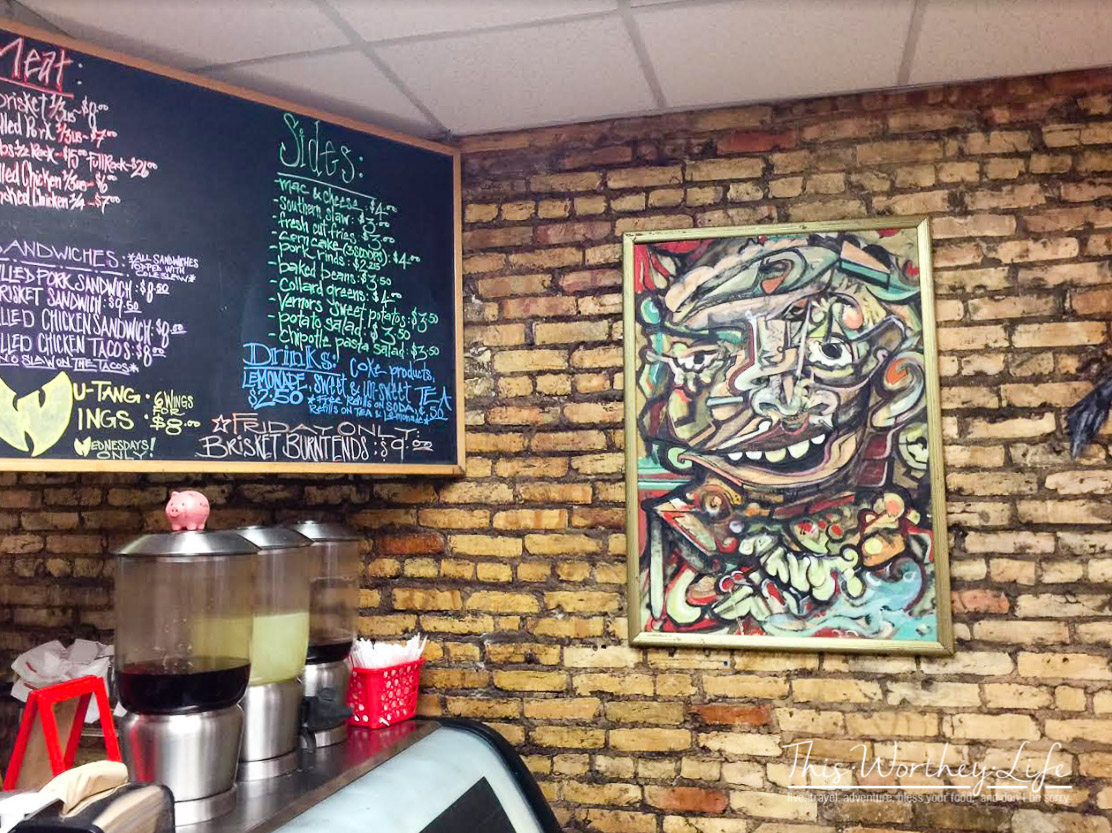 Meat:
Brisket 1/3 lb - $8.00
Pulled Pork 1/3 lb - $7.00
Ribs: 1/2 Rack - $15.00 Full Rack - $26.00
Pulled Chicken 1/3 lb - $6.00
Smoked Chicken 1/4 - $7.00
SANDWICHES: *ALL SANDWICHES
TOPPED WITH
COLE SLAW*
PULLED PORK SANDWICH: $8.50
BRISKET SANDWICH: $9.50
PULLED CHICKEN SANDWICH: $8.00
PULLED CHICKEN TACOS: $8.00
*NO SLAW ON THE TACOS*
WU-TANG
WINGS:
6 WINGS
FOR
$8.00
WEDNESDAYS!
ONLY!
Sides:
-mac & cheese: $4.00
-southern slaw: $3.00
-fresh cut fries: $3.00
-corn cake (3 scoops): $4.00
-pork rinds: $2.25
-baked beans: $3.50
-collard greens: $4.00
-vernors sweet potatos: $3.50
-potato salad: $3.50
-chipotle pasta salad: $3.50
Drinks: Coke products,
LEMONADE, Sweet & un-sweet TEA
$2.50
*Free Refills on SODA
Refills on TEA & Lemonade* $.50
☆FRIDAY ONLY:
BRISKET BURNT ENDS: $9.00
This Worthey Life
live, travel, adventure, bless your food, and don't be sorry